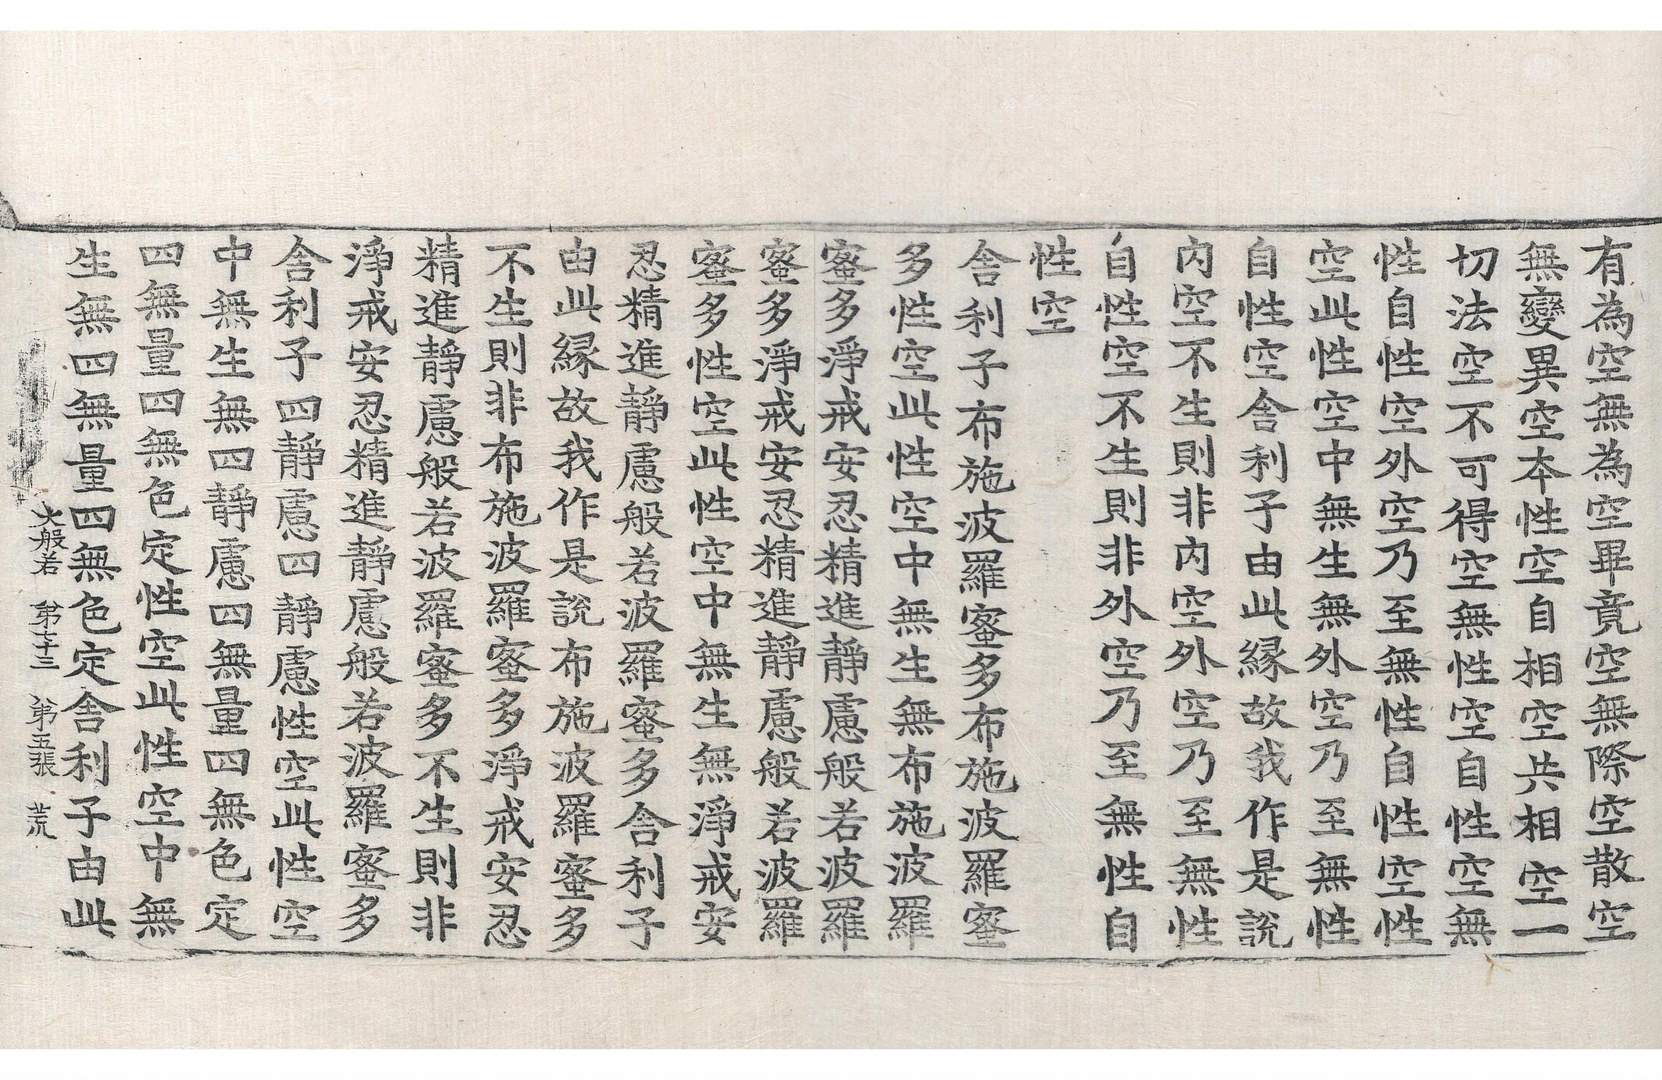 有為空無為空畢竟空無際空散空
無變異空本性空自相空共相空一
切法空不可得空無性空自性空無
性自性空外空乃至無性自性空性
空此性空中無生無外空乃至無性
自性空舍利子由此緣故我作是說
內空不生則非內空外空乃至無性
自性空不生則非外空乃至無性自
性空
舍利子布施波羅蜜多布施波羅蜜
多性空此性空中無生無布施波羅
蜜多淨戒安忍精進靜慮般若波羅
蜜多淨戒安忍精進靜慮般若波羅
蜜多性空此性空中無生無淨戒安
忍精進靜慮般若波羅蜜多舍利子
由此緣故我作是說布施波羅蜜多
不生則非布施波羅蜜多淨戒安忍
精進靜慮般若波羅蜜多不生則非
淨戒安忍精進靜慮般若波羅蜜多
舍利子四靜慮四靜慮性空此性空
中無生無四靜慮四無量四無色定
四無量四無色定性空此性空中無
生無四無量四無色定舍利子由此
大般若 第七十三 第五張 荒